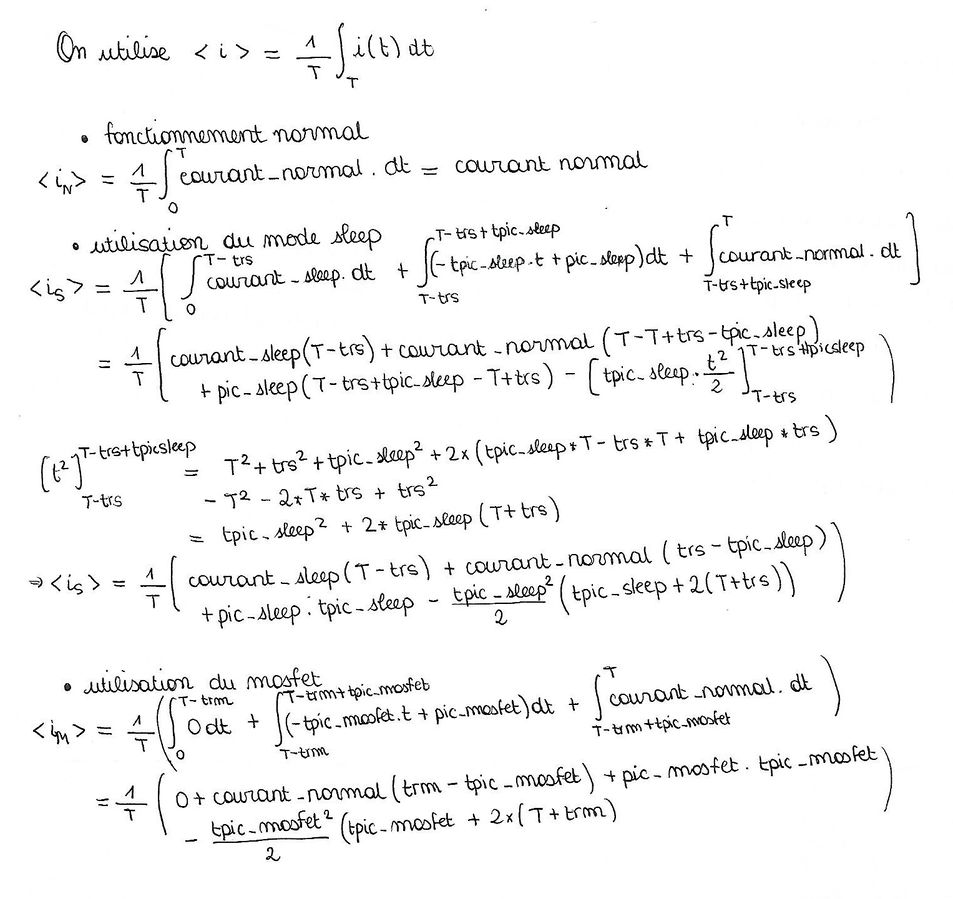 On utilise < i > = 1/T ∫_T i(t) dt
• fonctionnement normal
<i_N> = 1/T ∫_0^T courant_normal . dt = courant normal
• utilisation du mode sleep
<i_S> = 1/T [ ∫_0^{T-trs} courant_sleep. dt + ∫_{T-trs}^{T-trs+tpic_sleep} (-tpic_sleep.t + pic_sleep)dt + ∫_{T-trs+tpic_sleep}^T courant_normal. dt ]
= 1/T ( courant_sleep(T-trs) + courant_normal (T-T+trs-tpic_sleep)
+ pic_sleep(T-trs+tpic_sleep - T+trs) - [ tpic_sleep. t²/2 ]_{T-trs}^{T-trs+tpicsleep} )
[t²]_{T-trs}^{T-trs+tpicsleep} = T² + trs² + tpic_sleep² + 2x(tpic_sleep*T - trs*T + tpic_sleep * trs)
- T² - 2*T* trs + trs²
= tpic_sleep² + 2* tpic_sleep (T+trs)
⇒ <i_S> = 1/T ( courant_sleep(T-trs) + courant_normal ( trs - tpic_sleep)
+ pic_sleep . tpic_sleep - tpic_sleep²/2 (tpic_sleep + 2(T+trs)) )
• utilisation du mosfet
<i_M> = 1/T ( ∫_0^{T-trm} 0 dt + ∫_{T-trm}^{T-trm+tpic_mosfet} (-tpic_mosfet.t + pic_mosfet)dt + ∫_{T-trm+tpic_mosfet}^T courant_normal. dt )
= 1/T ( 0 + courant_normal (trm - tpic_mosfet) + pic_mosfet. tpic_mosfet
- tpic_mosfet²/2 (tpic_mosfet + 2x(T+trm) )